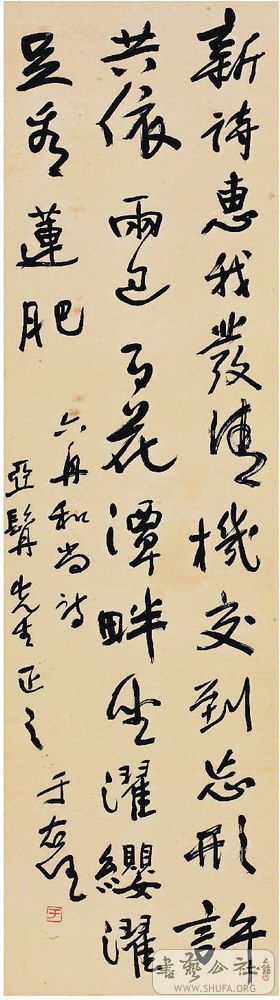 新詩惠我發清機交到忘形許
共依雨過百花潭畔坐濯纓濯
足看蓮肥
六舟和尚詩
亞髯先生正之
于右任
書藝公社
WWW.SHUFA.ORG